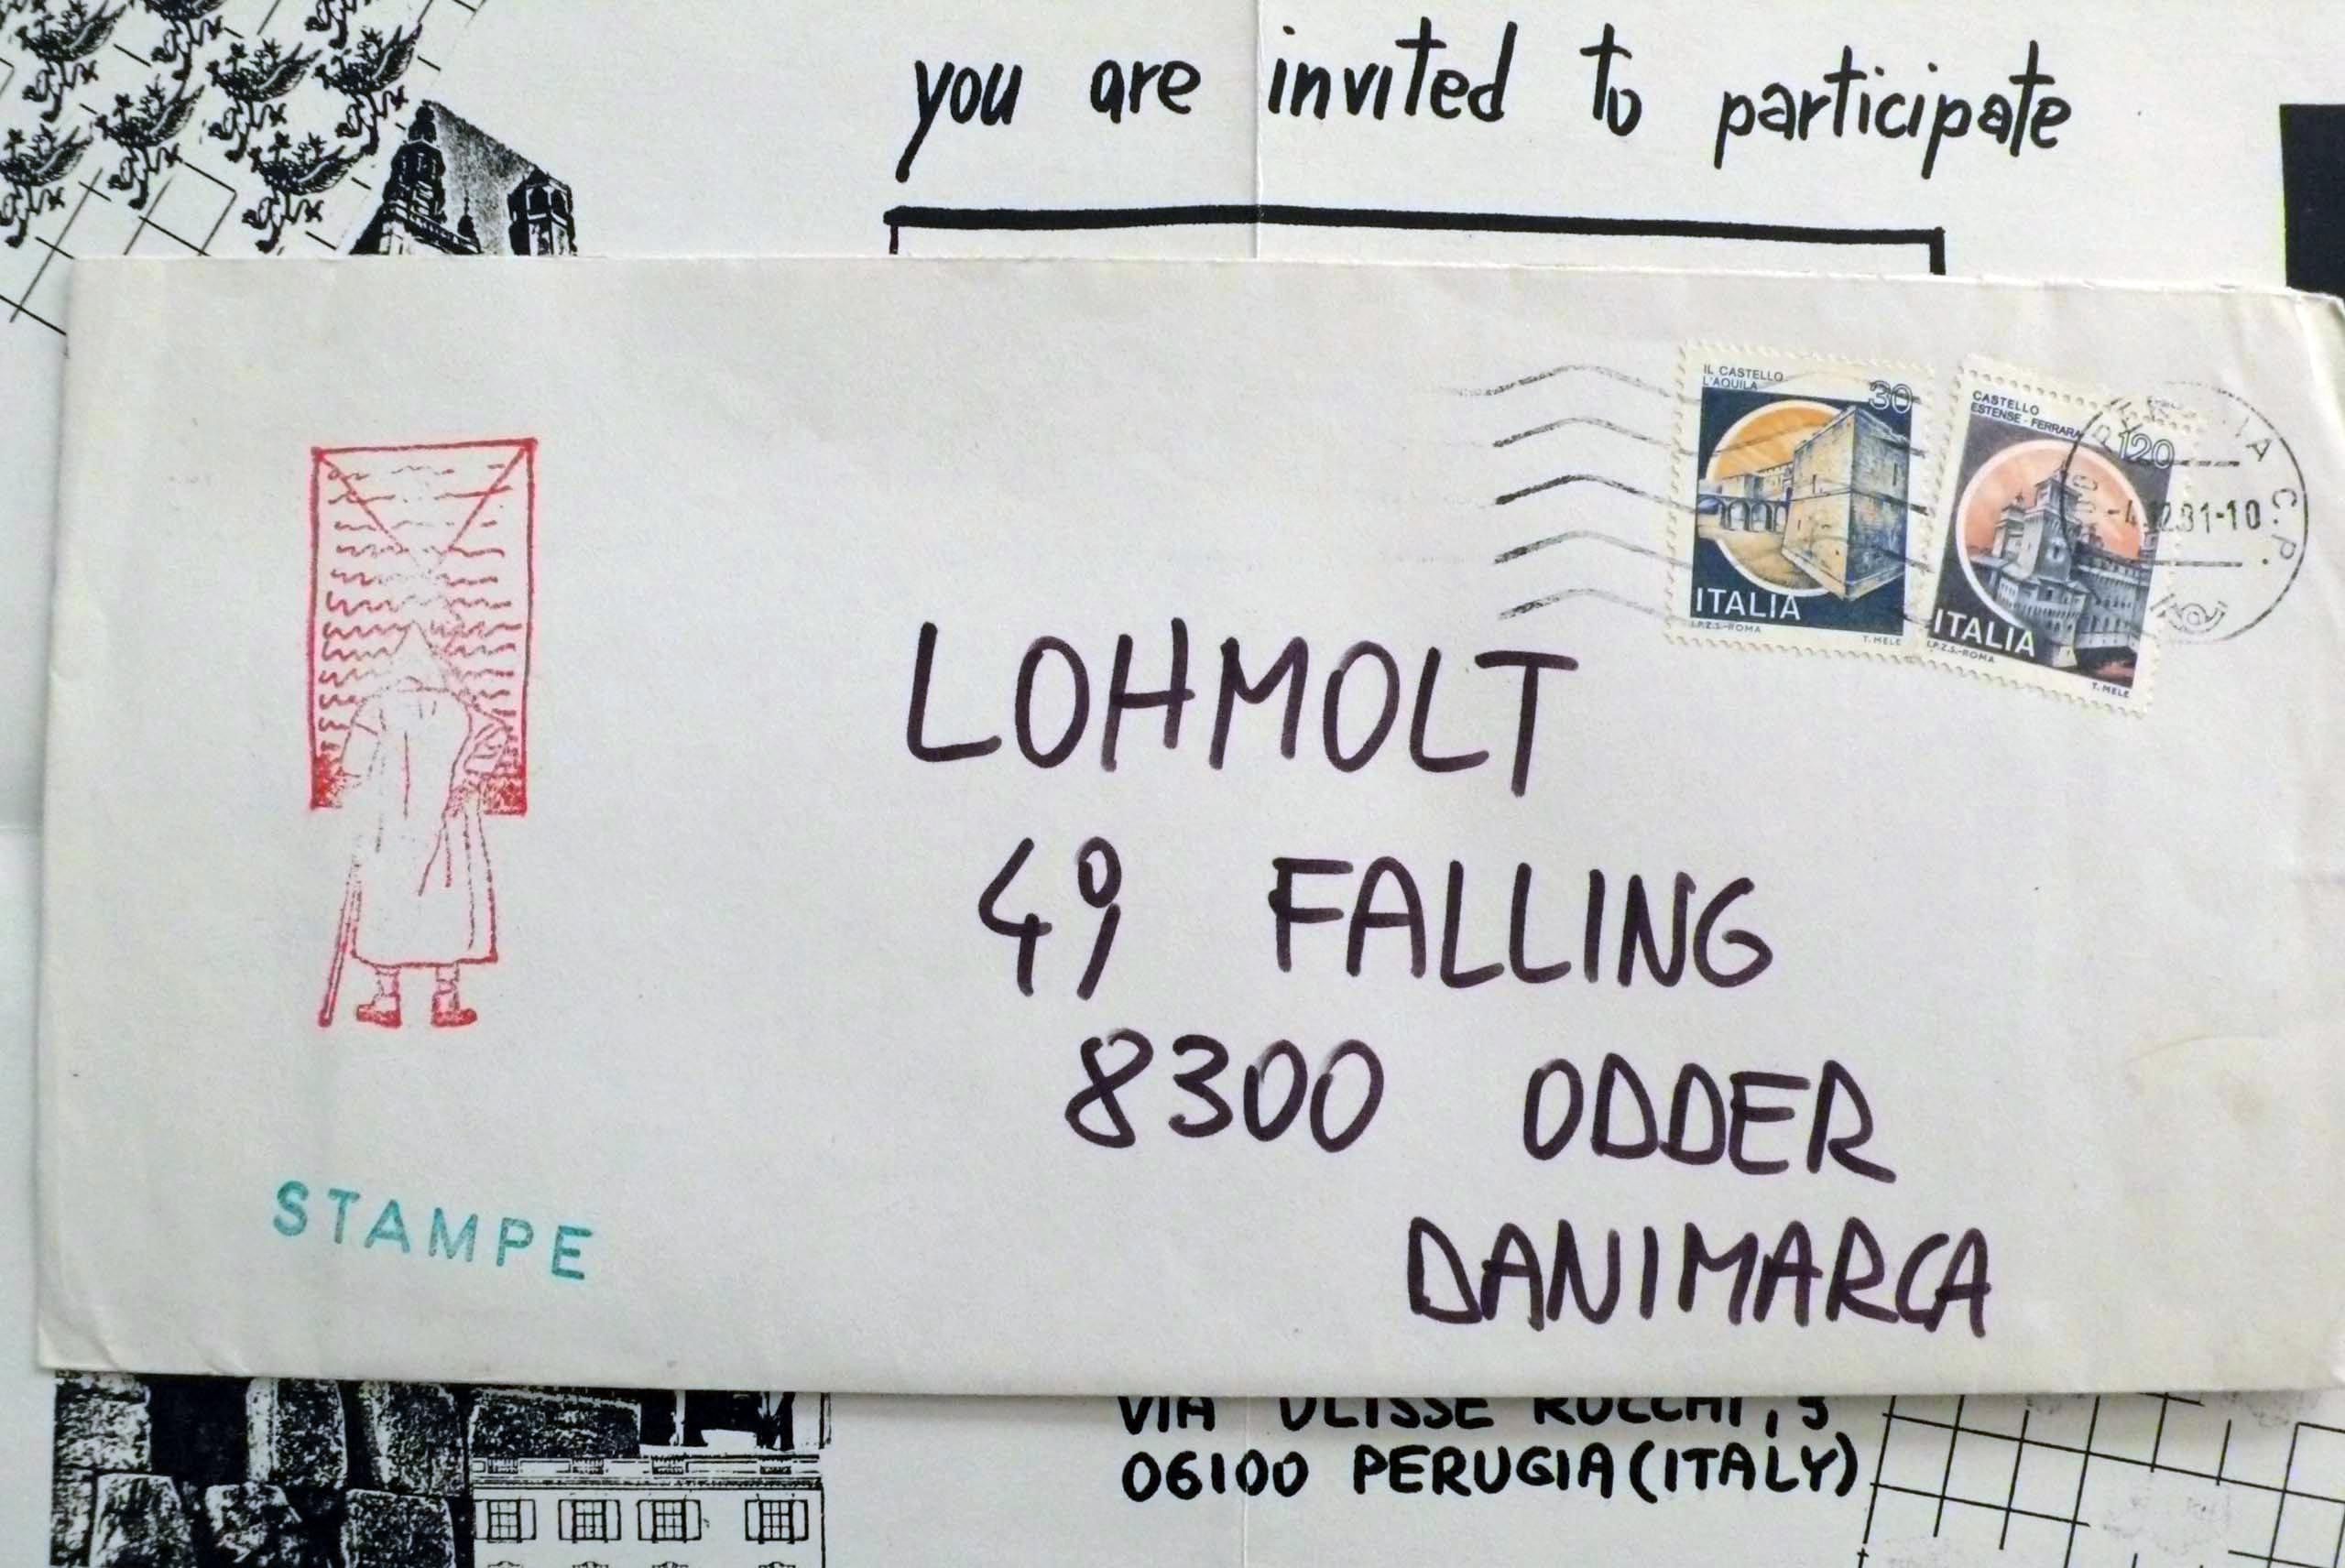 you are invited to participate
IL CASTELLO
L'AQUILA
30
ITALIA
I.P.Z.S.-ROMA
T. MELE
CASTELLO
ESTENSE - FERRARA
120
ITALIA
I.P.Z.S.-ROMA
T. MELE
C.P.
-4.12.81-10
LOHMOLT
49 FALLING
8300 ODDER
DANIMARCA
STAMPE
VIA ULISSE ROCCHI, 5
06100 PERUGIA (ITALY)